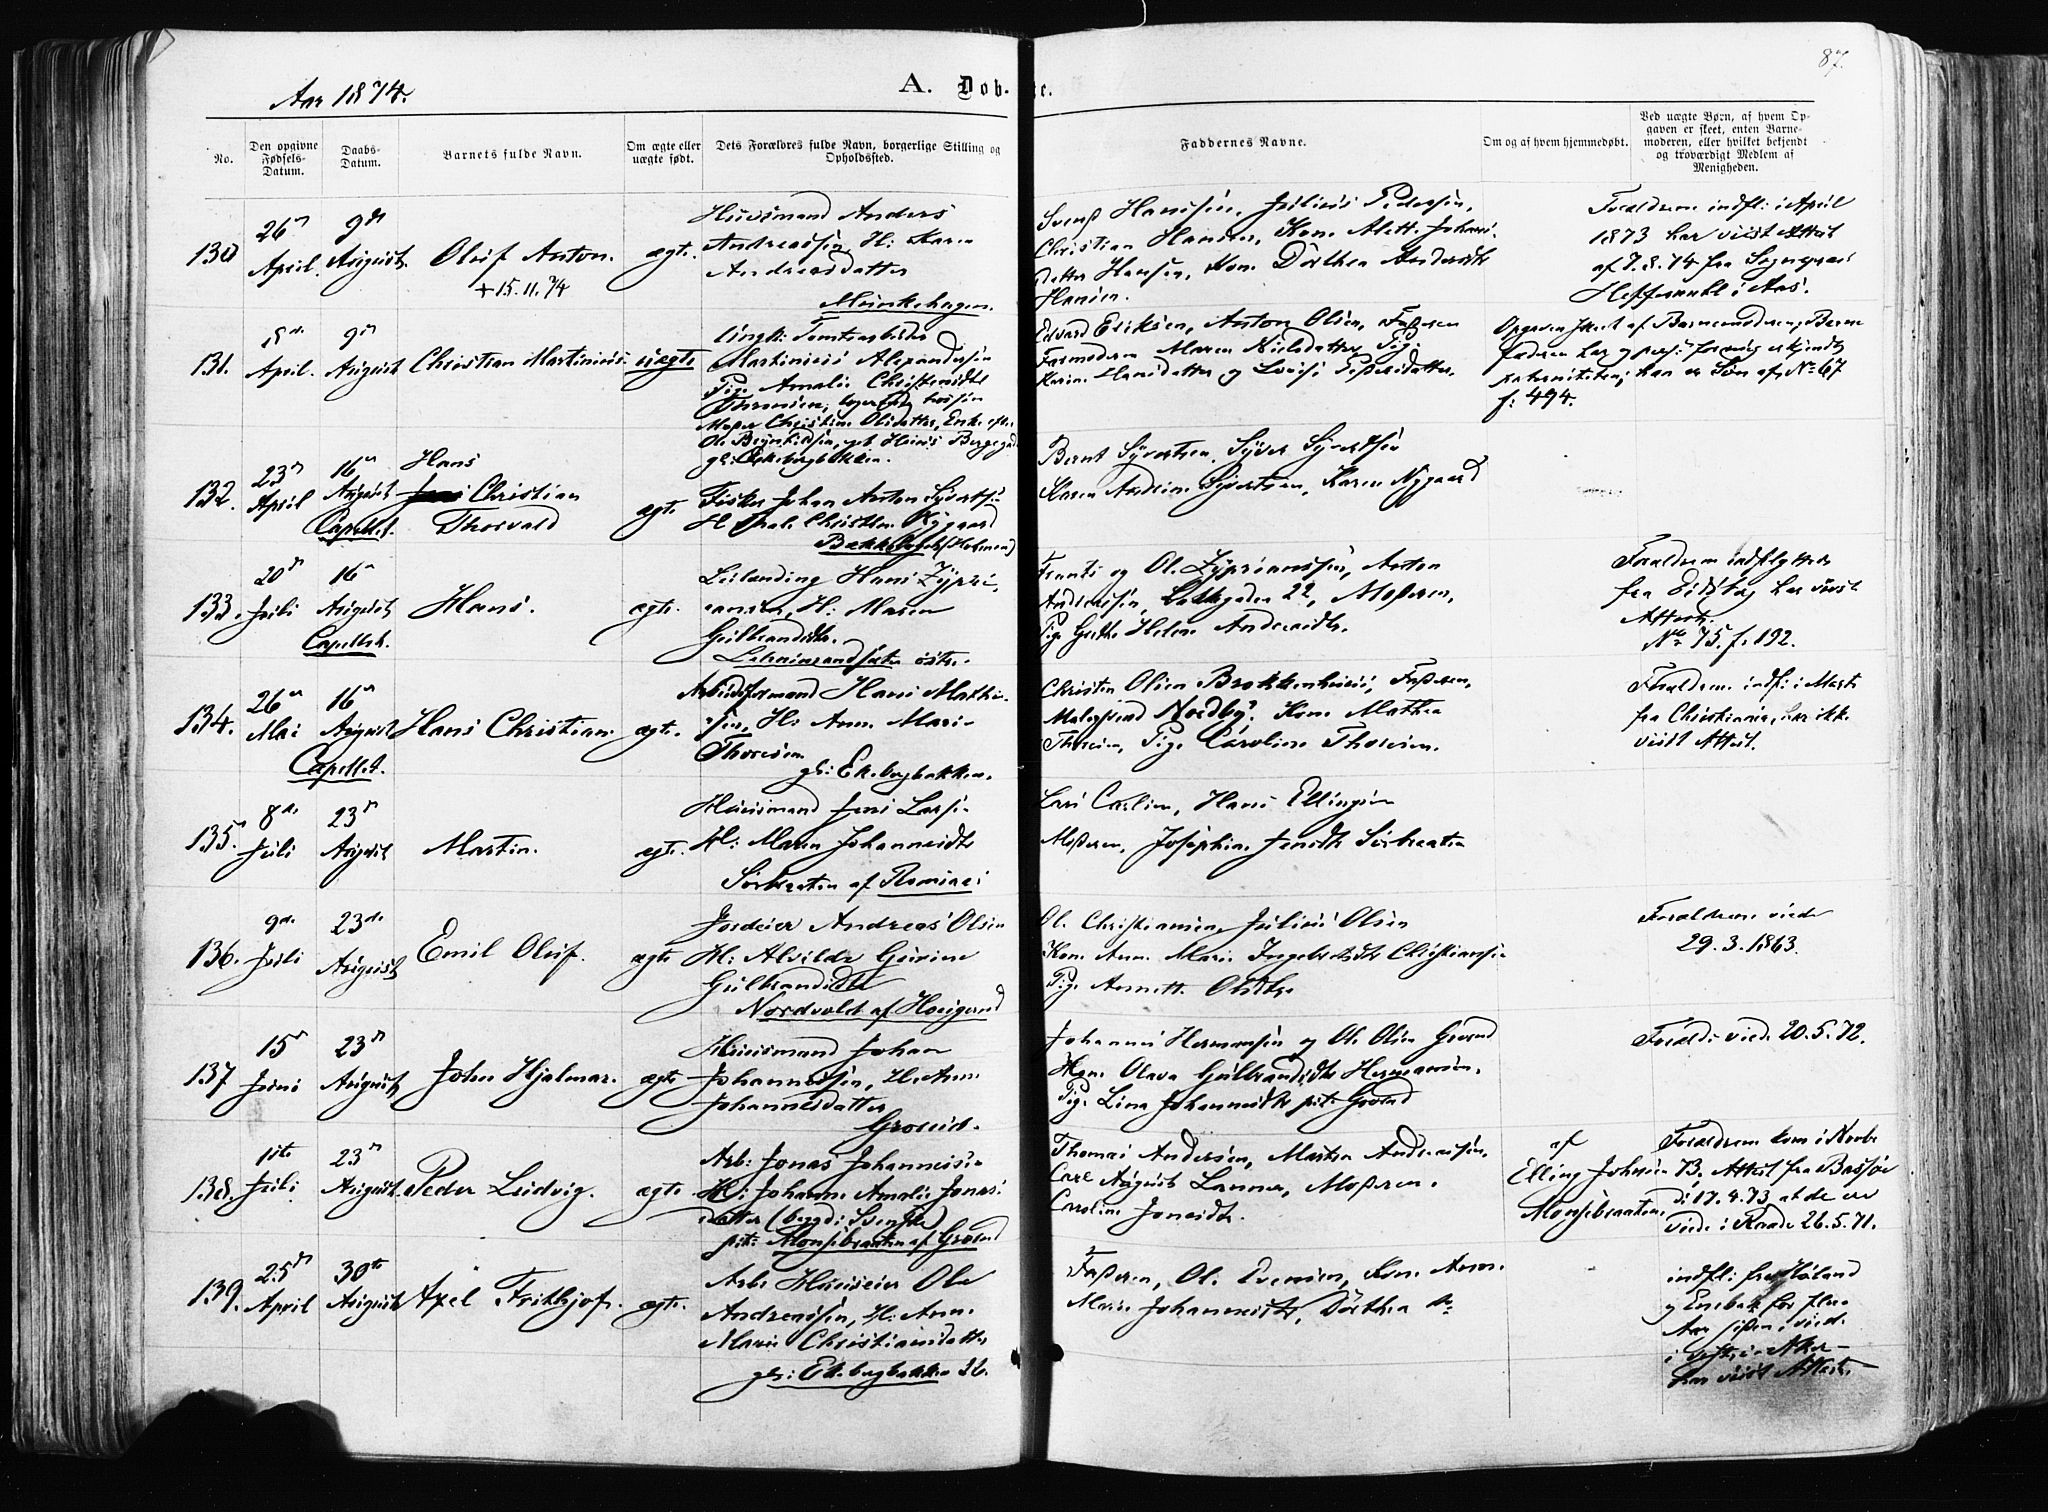 87.
Aar 1874.
A. Døb- te.
No.
Den opgivne Fødsels-Datum.
Daabs-Datum.
Barnets fulde Navn.
Om ægte eller uægte født.
Dets Forældres fulde Navn, borgerlige Stilling og Opholdssted.
Faddernes Navne.
Om og af hvem hjemmedøbt.
Ved uægte Børn, af hvem Opgaven er skeet, enten Barnemoderen, eller hvilket bekjendt og troværdigt Medlem af Menigheden.
130
26
April.
9
August.
Oluf Anton.
+ 15.11.74
ægte.
Huusmand Anders
Andreassen, H: Karen
Andreasdatter
Munkehagen.
Svend Hansen, Julius Pedersen,
Christian Hansen, Kone Alett. Johans-
datter Hansen, Kone Dorthea Andersdtr
Hansen.
Forældrene indfl: i April
1873 har viist Attest
af 7.8.74 fra Sognepræst
i Aas.
131.
April.
9
August
Christian Martinius.
uægte
Ungk: Tomtearbeider
Martinius Alexandersen
Pige Amalie Christensdtr
Edvard Eriksen, Anton Olsen, Faderen
Farmoderen Maren Nielsdatter, Pige
Karen Hansdatter og Lovise Pedersdatter.
Opgaven skeet af Barnemoderen, Barne
faderen har
paterniteten; han er Søn af No 67
f: 494.
Moder Christine Olsdatter, Enke efter
gl: Ekebergbakken.
132.
23
April
16
August
Capellet.
Hans
Christian
Thorvald
ægte
Fisker Johan Anton Syvertsen
Christine Nygaard
Bernt Syvertsen, Syver Syvertsen
Karen Andrine Syvertsen, Karen Nygaard
133.
20
Juli
16
August
Capellet.
Hans.
ægte.
Leilending Hans Zypri-
ansen, H: Maren
Gulbrandsdtr.
østre.
Frants og Ole Zypriansen, Anton
Andersen, 22, Moderen,
Pige Grethe Helene Andersdtr.
Forældrene indflyttede
fra Eidsvog har viist
Attest.
No 75. f. 192.
134.
26
Mai
16
August
Capellet.
Hans Christian.
ægte.
Arbeidsformand Hans Mathi-
sen, H: Anne Marie
Thoresen
gl: Ekebergbakken.
Christen Olsen Brokkenhuus, Faderen,
Malersvend Nordby, Kone Mathea
Thoresen, Pige Caroline Thoresen.
Forældrene indfl: i Marts
fra Christiania, har ikke
viist Attest.
135.
8de
Juli
23
August
Martin.
ægte.
Huusmand Jens Larsen
H: Maren Johannesdtr
Sørbraaten af
Lars Carlsen, Hans Ellingsen
Moderen, Josephine Jensdtr Sørbraaten
136.
9de
Juli
23de
August
Emil Oluf.
ægte
Jordeier Andreas Olsen
H: Alvilde Gurine
Gulbrandsdtr
Nordvolde af Haugerud
Ole Christiansen, Julius Olsen
Kone Anne Marie Ingebretsdtr Christiansen
Pige Annette Olsdtr
Forældrene viede
29.3.1863.
137
15
Juni
23
August
John Hjalmar.
ægte
Huusmand Johan
Johannessen, H: Anne
Johannesdatter
Grorud.
Johannes Hermansen og Ole Olsen Grorud
Kone Olava Gulbrandsdtr Hermansen,
Pige Lina Johannesdtr pit: Grorud
Foræld: viede 20.5.72.
138.
1ste
Juli
23
August.
Peder Ludvig.
ægte
Arb: Jonas Johannesen
H: Johanne Amalie Jonas-
datter (begge Svenske)
pit: Monsebraaten af Grorud
Thomas Andersen, Martin Andreassen,
Carl August Lanner, Moderen.
Caroline Jonsdtr.
af
Elling Johnsen
Monsebraaten
Forældrene kom i Novbr
73, Attest fra
d: 17.4.73 at de ere
viede i Raade 26.5.71.
139.
25
April
30te
August
Axel Frithjof.
ægte.
Arb: Huuseier Ole
Andreassen, H: Anne
Marie Christiansdatter
gl: Ekebergbakken 26.
Faderen, Ole Evensen, Kone Anne
Marie Johannesdtr, Dorthea
indfl: fra Høland
og Enebak for flere
Aar siden, viede
i Aker -
har viist Attest. -